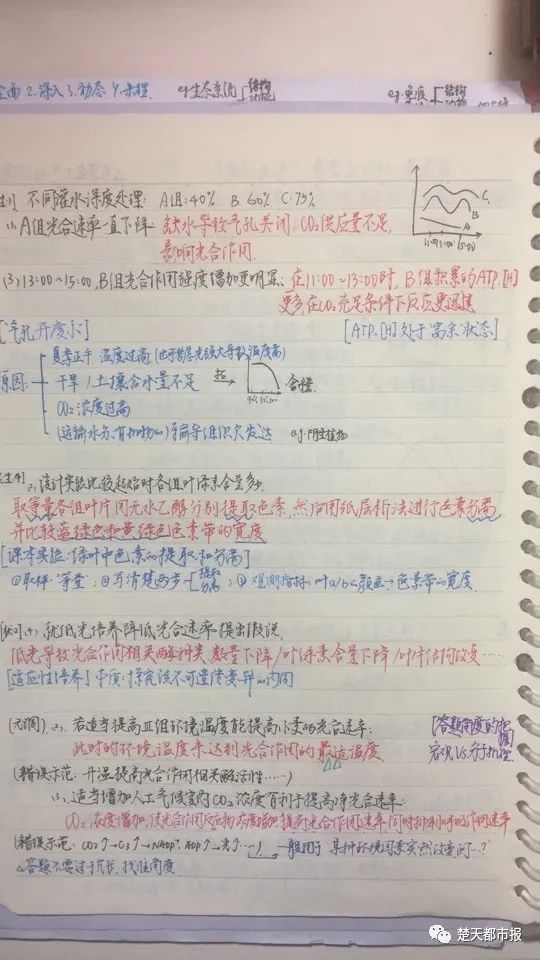 全面 2.深入 3.动态 4.
eg生态系统 结构 功能
eg.免疫 结构 功能
不同灌水深度处理: A组:40%. B 60% C.75%
(1) A组光合速率一直下降: 缺水导致气孔关闭, CO₂供应量不足,
影响光合作用
C
B
A
(3) 13:00~15:00, B组光合作用强度增加更明显: 在11:00~13:00时, B组积累的ATP.[H]
更多,在CO₂充足条件下反应更迅速
[气孔开度小] [ATP.[H]处于富余状态]
原因: 夏季正午,温度过高 (也可能是光强大导致温度高)
干旱/土壤含水量不足
CO₂浓度过高
(运输水分、有机物的)输导组织欠发达 eg.阴生植物
设计实验比较起始时各组叶绿素含量多少
取等量各组叶片用无水乙醇分别提取色素,然后用纸层析法进行色素分离
并比较蓝绿色和黄绿色色素带的宽度
[课本实验:绿叶中色素的提取和分离]
①取样:等量; ②写清楚两步 提取 分离; ③观测指标: 叶a/b→颜色→色素带的宽度
就低光培养降低光合速率提出假说
低光导致光合作用相关酶种类、数量下降/叶绿素含量下降/叶片结构改变……
[适应性培养]
若适当提高 组环境温度能提高小麦的光合速率:
[答题角度的把握]
此时的环境温度未达到光合作用的最适温度
宏观VS分子机理
(错误示范: 升温提高光合作用相关酶活性……)
适当增加人工气候室内CO₂浓度有利于提高净光合速率:
CO₂浓度增加, 提高光合作用速率,同时抑制呼吸作用速率
(错误示范: CO₂↑→C₃↑→NADP⁺、ADP↑→光↑…) → 一般用于 某种环境因素突然改变问…?
△答题不要过于冗长, 找准角度
楚天都市报